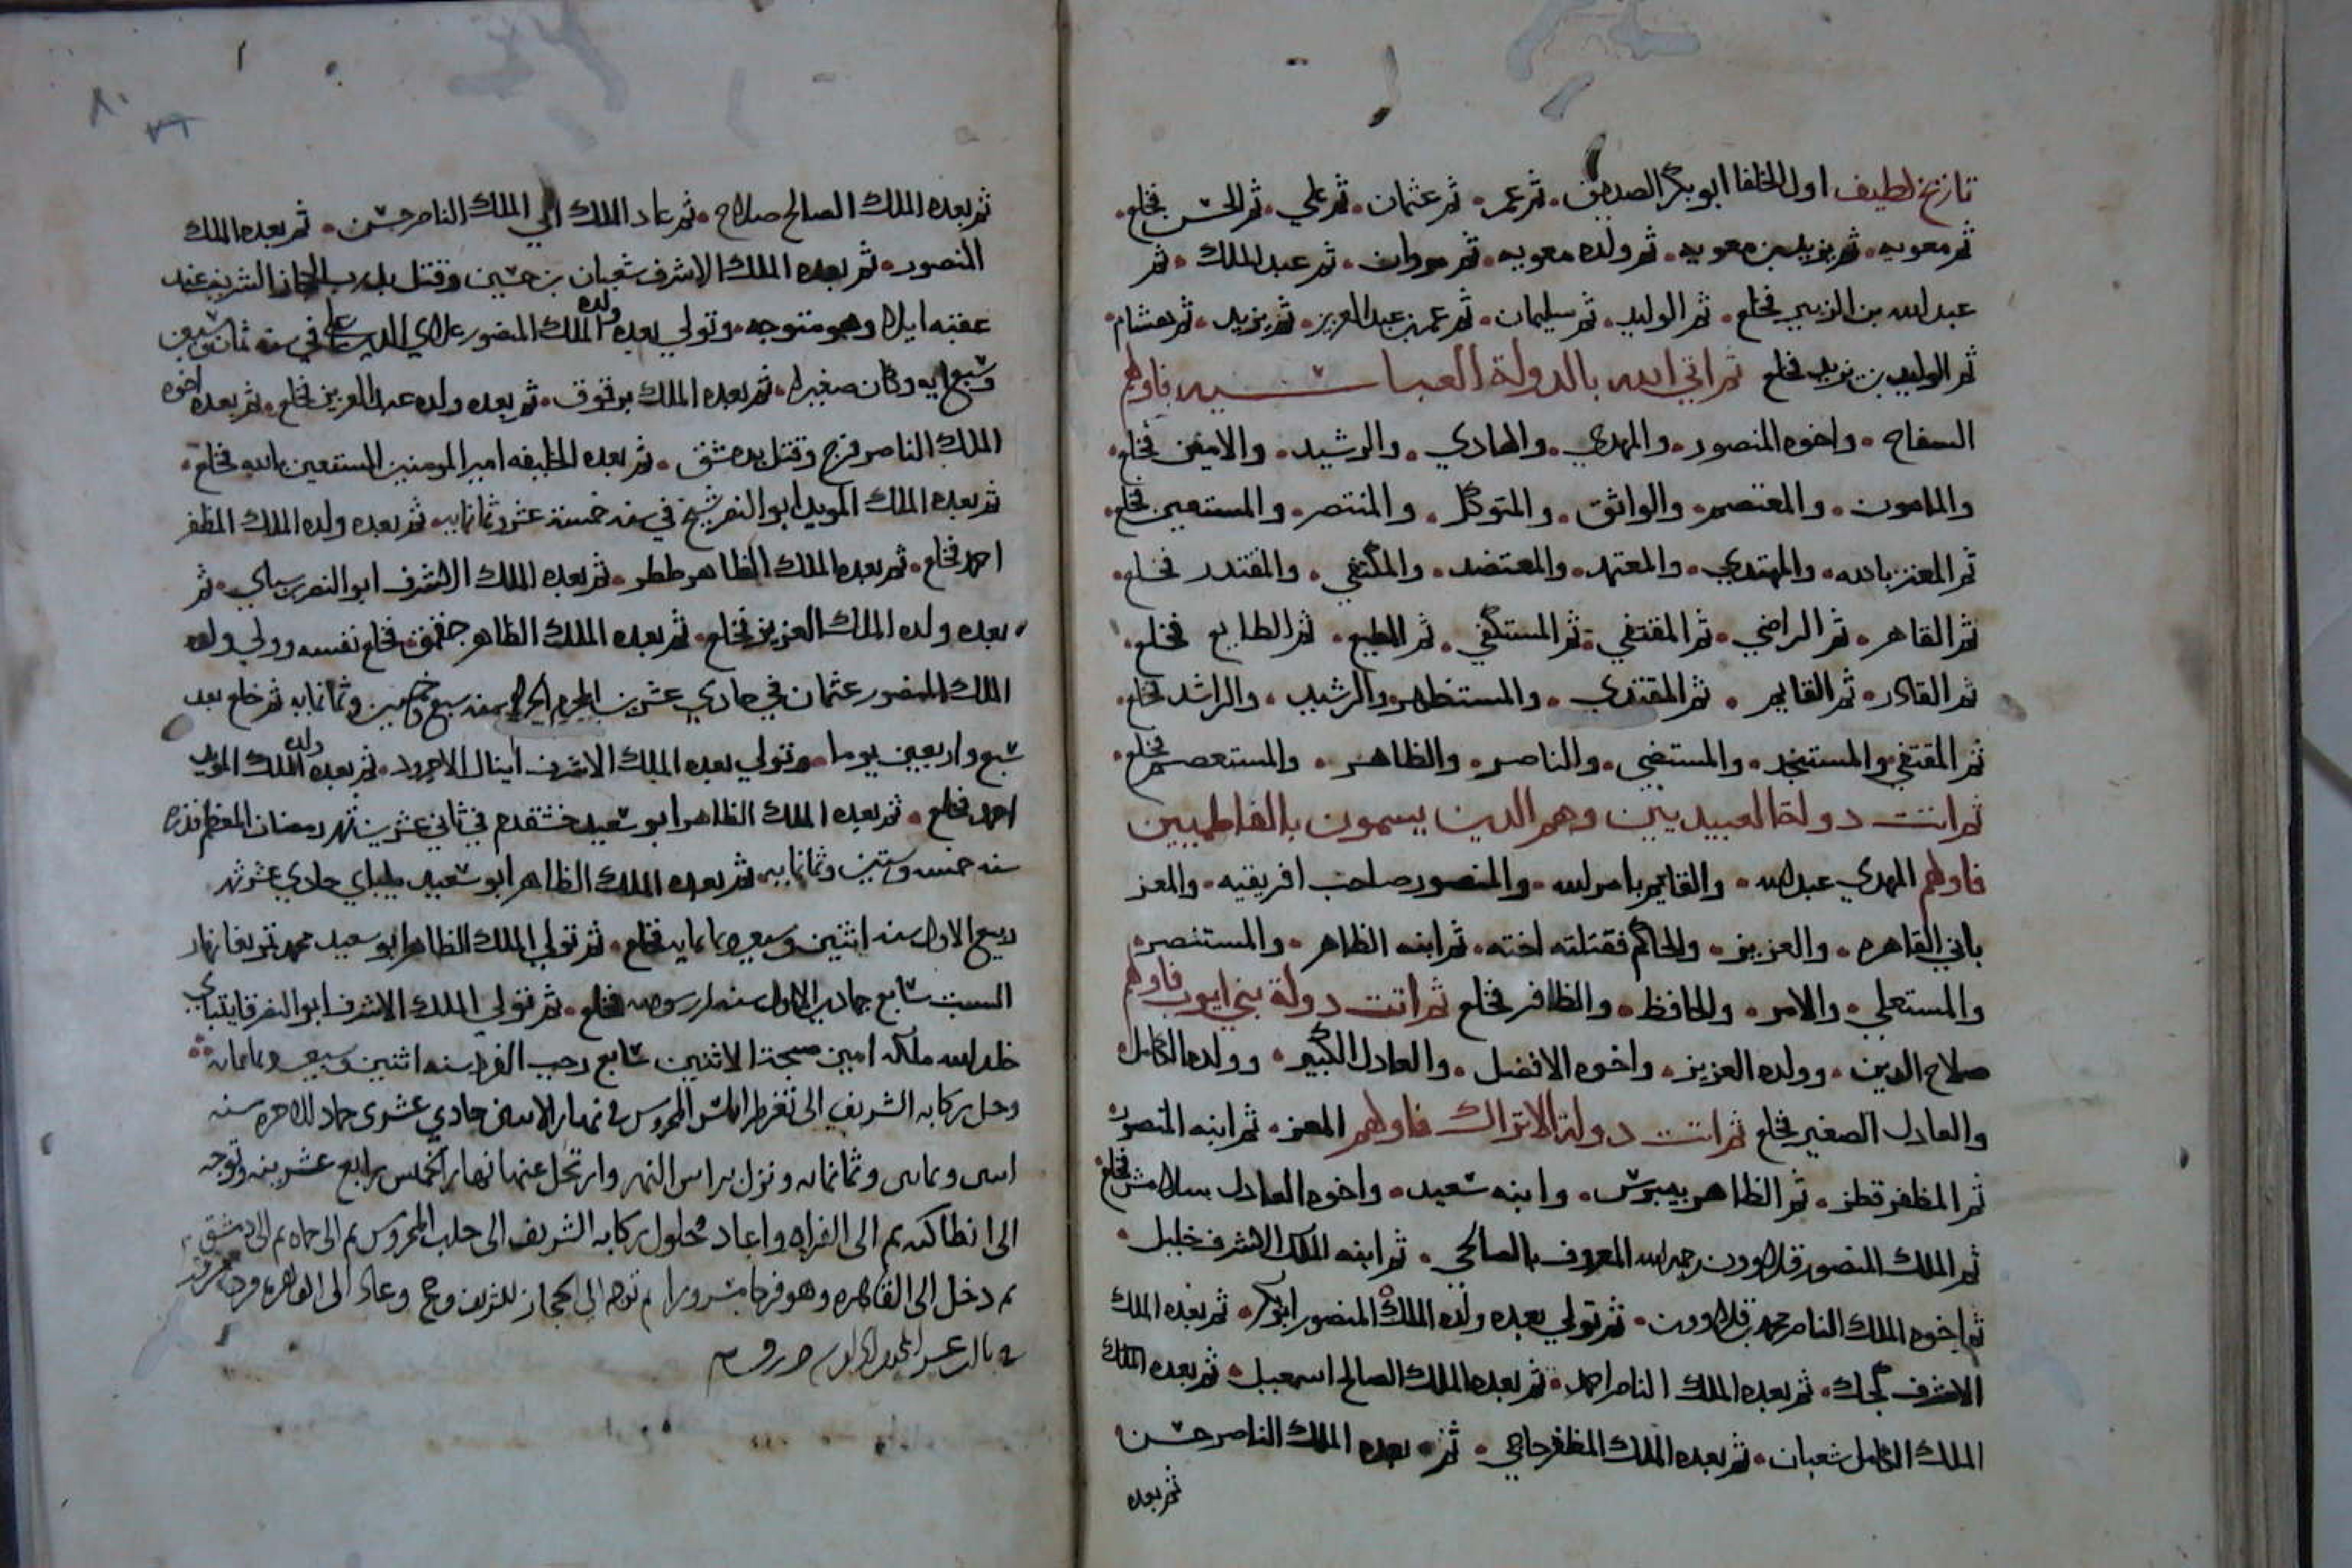 تاريخ لطيف اول الخلفا ابو بكر الصديق • ثم عمر • ثم عثمان • ثم علي • ثم الحسن فخلع •
ثم معويه • ثم يزيد بن معويه • ثم ولده معويه • ثم مروان • ثم عبد الملك • ثم
عبد الله بن الزبير فخلع • ثم الوليد • ثم سليمان • ثم عمر بن عبد العزيز • ثم يزيد • ثم هشام •
ثم الوليد بن يزيد فخلع ثم اتي الله بالدولة العباسيه فاولهم
السفاح • واخوه المنصور • والمهدي • والهادي • والرشيد • والامين فخلع •
والمامون • والمعتصم • والواثق • والمتوكل • والمنتصر • والمستعين فخلع •
ثم المعتز بالله • والمهتدي • والمعتمد • والمعتضد • والمكتفي • والمقتدر فخلع •
ثم القاهر • ثم الراضي • ثم المقتفي • ثم المستكفي • ثم المطيع • ثم الطايع فخلع •
ثم القادر • ثم القايم • ثم المقتدي • والمستظهر • والرشيد • والراشد فخلع •
ثم المقتفي • والمستنجد • والمستضي • والناصر • والظاهر • والمستعصم فخلع •
ثم اتت دولة العبيديين وهم الدين يسمون بالفاطميين
فاولهم المهدي عبد الله • والقايم بامر الله • والمنصور صاحب افريقيه • والمعز
باني القاهره • والعزيز • والحاكم فقتلته اخته • ثم ابنه الظاهر • والمستنصر •
والمستعلي • والامر • والحافظ • والظافر فخلع ثم اتت دولة بني ايوب فاولهم
صلاح الدين • وولده العزيز • واخوه الافضل • والعادل الكبير • وولده الكامل •
والعادل الصغير فخلع ثم اتت دولة الاتراك فاولهم المعز • ثم ابنه المنصور •
ثم المظفر قطز • ثم الظاهر بيبرس • وابنه سعيد • واخوه العادل سلامش فخلع •
ثم الملك المنصور قلاوون رحمه الله المعروف بالصالحي • ثم ابنه الملك الاشرف خليل •
ثم اخوه الملك الناصر محمد بن قلاوون • ثم تولي بعده ولده الملك المنصور ابو بكر • ثم بعده الملك
الاشرف كجك • ثم بعده الملك الناصر احمد • ثم بعده الملك الصالح اسمعيل • ثم بعده الملك
الملك الكامل شعبان • ثم بعده الملك المظفر حاجي • ثم بعده الملك الناصر حسن •
ثم بعده
ثم بعده الملك الصالح صلاح • ثم عاد الملك الي الملك الناصر حسن • ثم بعده الملك
المنصور • ثم بعده الملك الاشرف شعبان بن حسين وقتل بدرب الحجاز الشريف عند
عقبه ايلا وهو متوجه • وتولي بعده ولده الملك المنصور علاي الدين علي في سنه ثمان وسبعين
وسبعمايه وكان صغيرا • ثم بعده الملك برقوق • ثم بعده ولده عبد العزيز فخلع • ثم بعده اخوه
الملك الناصر فرج وقتل بدمشق • ثم بعده الخليفه امير المومنين المستعين بالله فخلع •
ثم بعده الملك المويد ابو النصر شيخ في سنه خمسة عشر وثمانمايه • ثم بعده ولده الملك المظفر
احمد فخلع • ثم بعده الملك الظاهر ططر • ثم بعده الملك الاشرف ابو النصر برسباي • ثم
بعده ولده الملك العزيز فخلع • ثم بعده الملك الظاهر جقمق فخلع نفسه وولي ولده
الملك المنصور عثمان في حادي عشرين المحرم الحرام سنه سبع وخمسين وثمانمايه ثم خلع بعد
سبع واربعين يوما • وتولي بعده الملك الاشرف اينال الاجرود • ثم بعده ولده الملك المويد
احمد فخلع • ثم بعده الملك الظاهر ابو سعيد خشقدم في ثاني عشرين شهر رمضان المعظم قدره
سنه خمسه وستين وثمانمايه • ثم بعده الملك الظاهر ابو سعيد يلباي حادي عشر شهر
ربيع الاول سنه اثنين وسبعين وثمانمايه فخلع • ثم تولي الملك الظاهر ابو سعيد محمد تمربغا نهار
السبت سابع جمادي الاول سنه فخلع • ثم تولي الملك الاشرف ابو النصر قايتباي
خلد الله ملكه امين صبيحة الاثنين سابع رجب الفرد سنه اثنين وسبعين وثمانمايه
وحل ركابه الشريف الى ثغر طرابلس المحروس في نهار الاثنين حادي عشرى جماد الاخره سنه
اثنين وثمانين وثمانمايه ونزل براس النهر وارتحل عنها نهار الخميس رابع عشرينه وتوجه
الى انطاكيه ثم الى الفراه واعاد حلول ركابه الشريف الى حلب المحروس ثم الى حماه ثم الى دمشق
ثم دخل الى القاهره وهو فرحا مسرورا ثم توجه الى الحجاز الشريف وحج وعاد الى القاهره